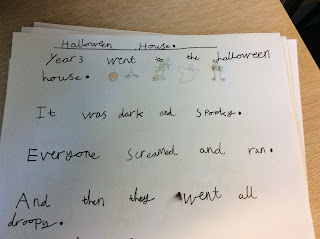 Halloween House.
Year 3 went to the halloween
house.
It was dark and spooky.
Everyone screamed and ran.
And then they went all
droopy.